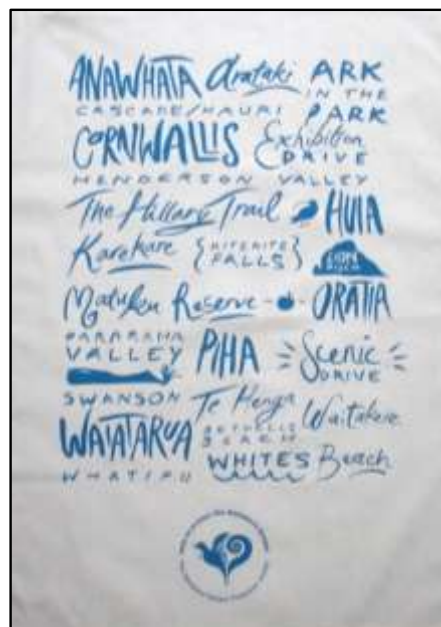 ANAWHATA Arataki ARK
IN THE
CASCADE/KAURI PARK
CORNWALLIS Exhibition
DRIVE
HENDERSON VALLEY
The Hillary Trail HUIA
Karekare {KITEKITE
FALLS} LION
ROCK
Matuku Reserve ORATIA
PARARAHA
VALLEY PIHA Scenic
DRIVE
SWANSON Te Henga Waitakere
BETHELLS
BEACH
WAIATARUA
WHATIPU WHITES Beach